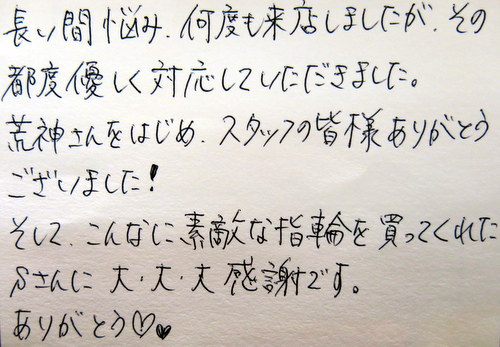 長い間悩み、何度も来店しましたが、その
都度優しく対応していただきました。
荒神さんをはじめ、スタッフの皆様ありがとう
ございました!
そして、こんなに素敵な指輪を買ってくれた
Sさんに大・大・大感謝です。
ありがとう♡♥